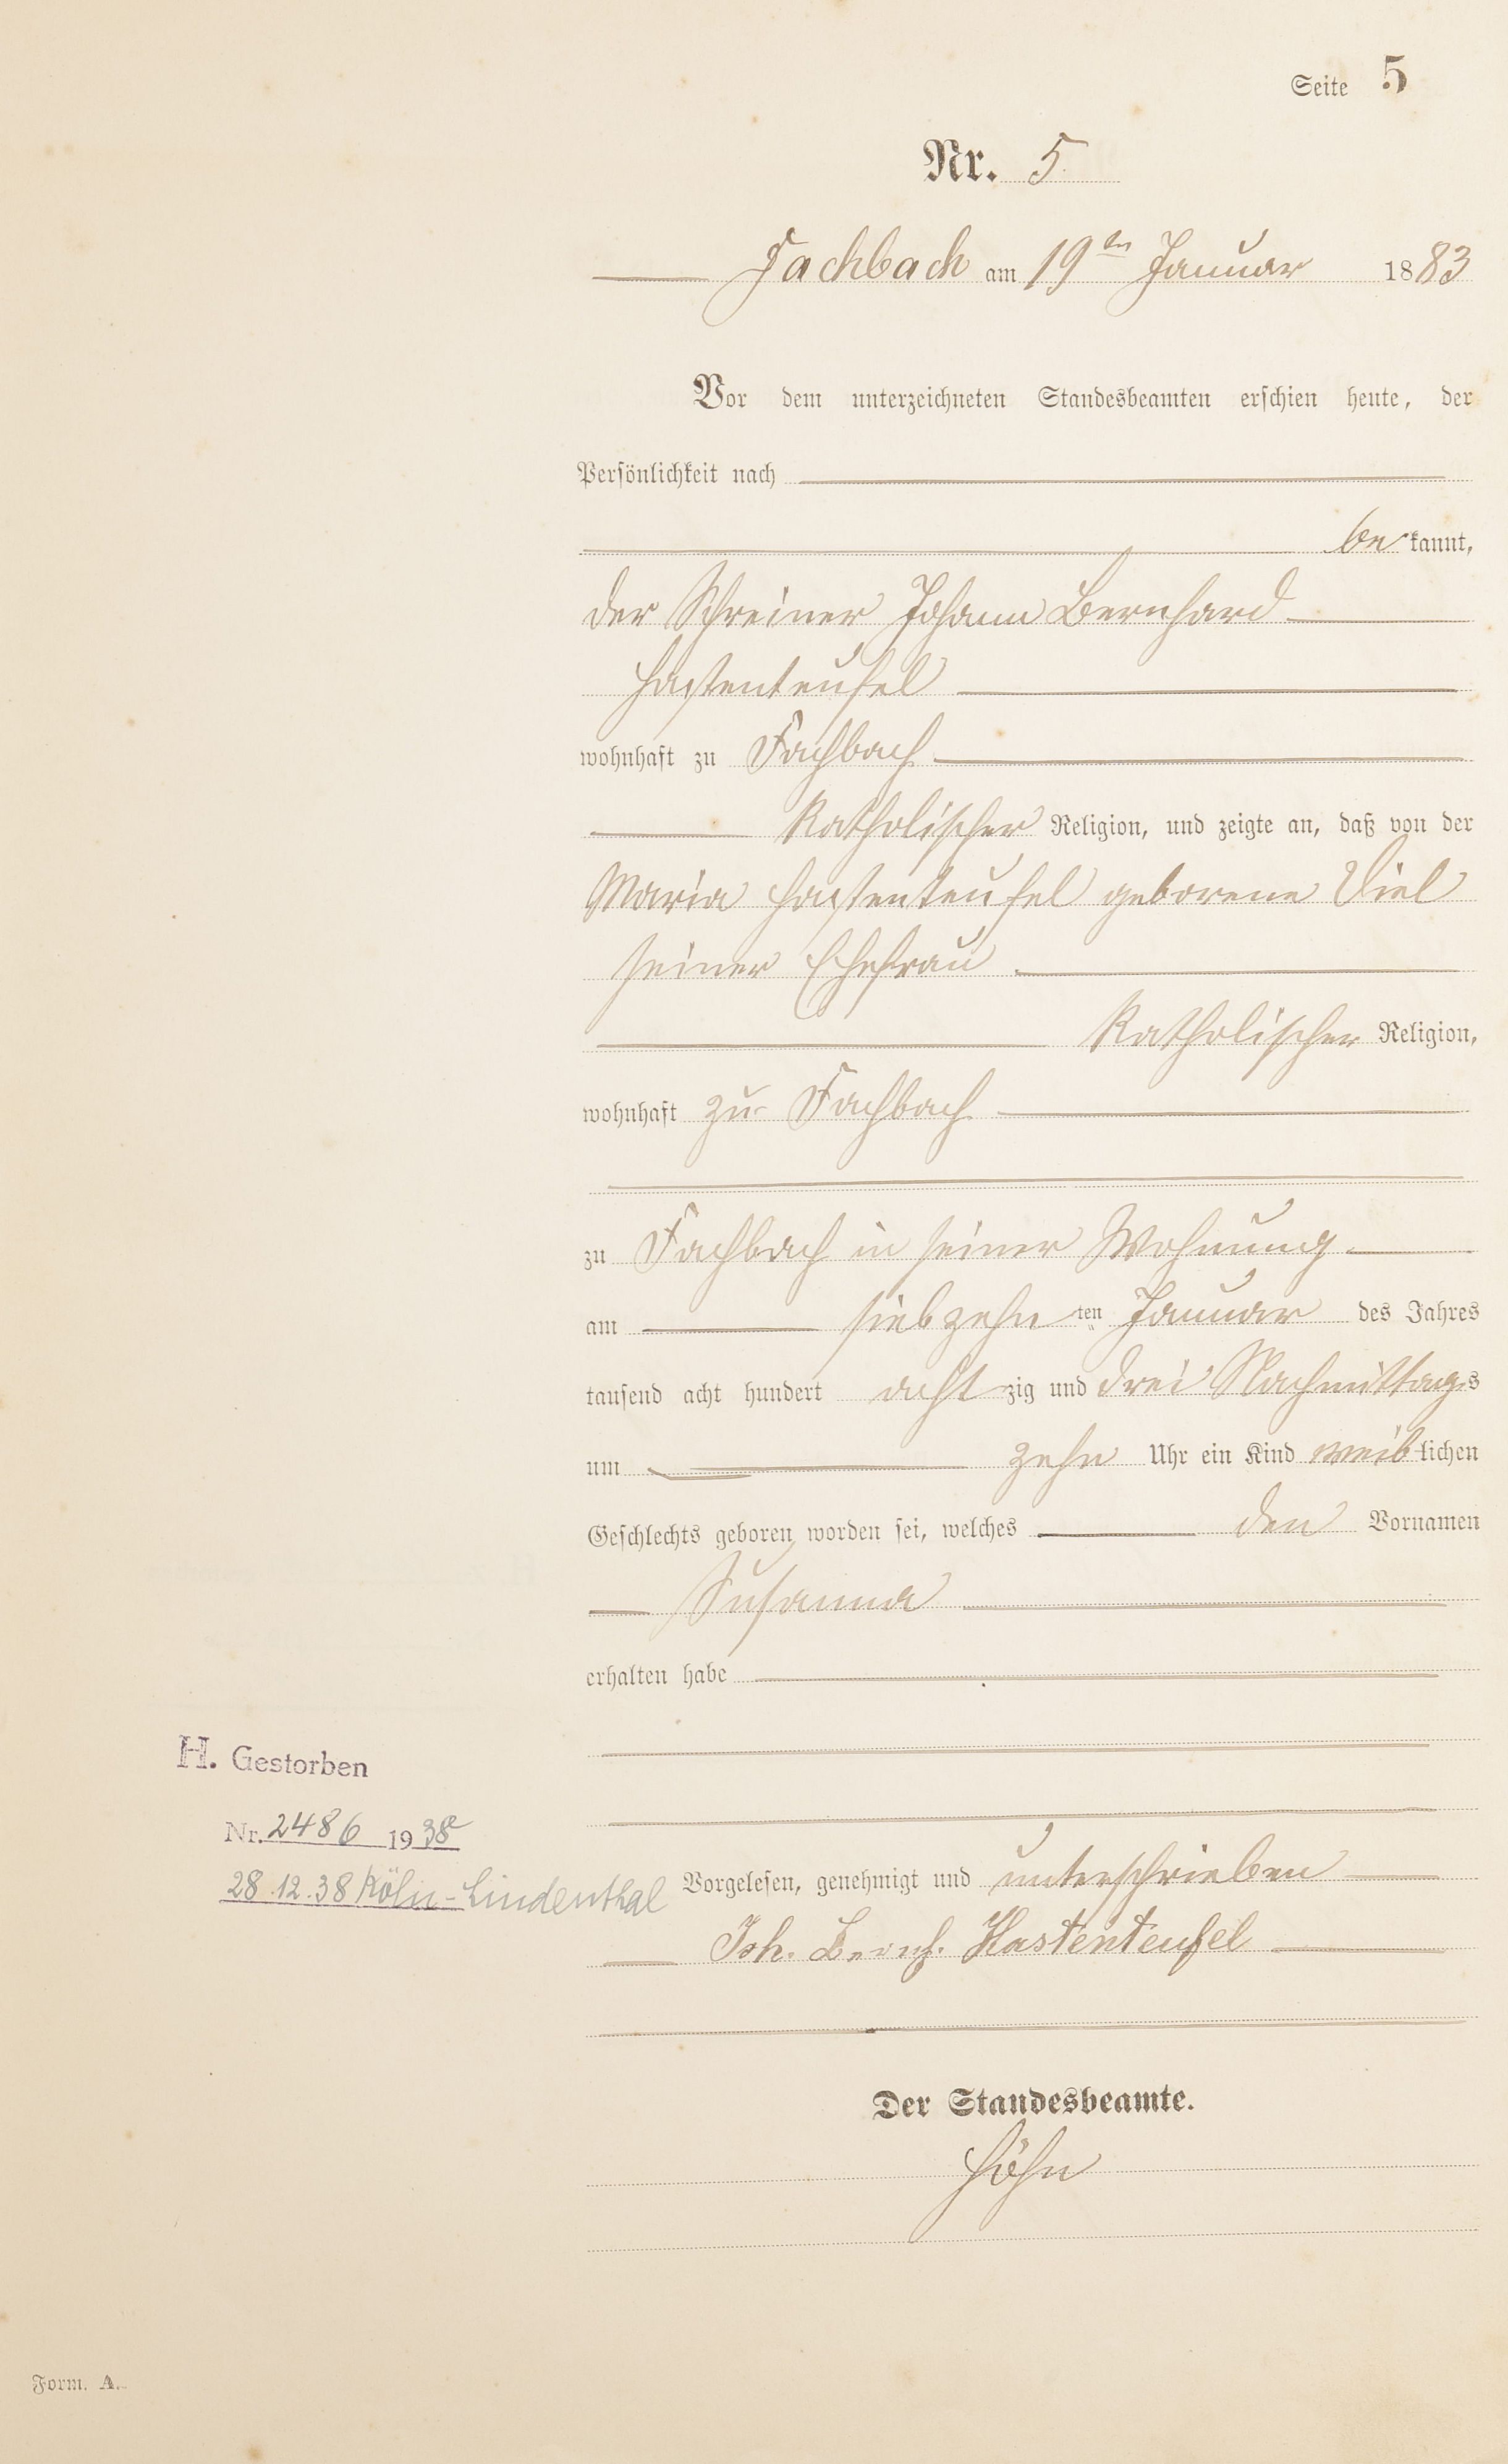 Seite 5
Nr. 5.
Fachbach am 19ten Januar 1883
Vor dem unterzeichneten Standesbeamten erschien heute, der
Persönlichkeit nach
bekannt,
der Schreiner Johann Bernhard
Hastenteufel
wohnhaft zu Fachbach
katholischer Religion, und zeigte an, daß von der
Maria Hastenteufel geborene Viel
seiner Ehefrau
katholischer Religion,
wohnhaft zu Fachbach
zu Fachbach in seiner Wohnung
am siebzehnten Januar des Jahres
tausend acht hundert achtzig und drei Nachmittags
um zehn Uhr ein Kind weiblichen
Geschlechts geboren worden sei, welches den Vornamen
Susanna
erhalten habe
H. Gestorben
Nr. 2486 1938
28.12.38 Köln-Lindenthal
Vorgelesen, genehmigt und unterschrieben
Joh. Bernh. Hastenteufel
Der Standesbeamte.
Höhn
Form. A.